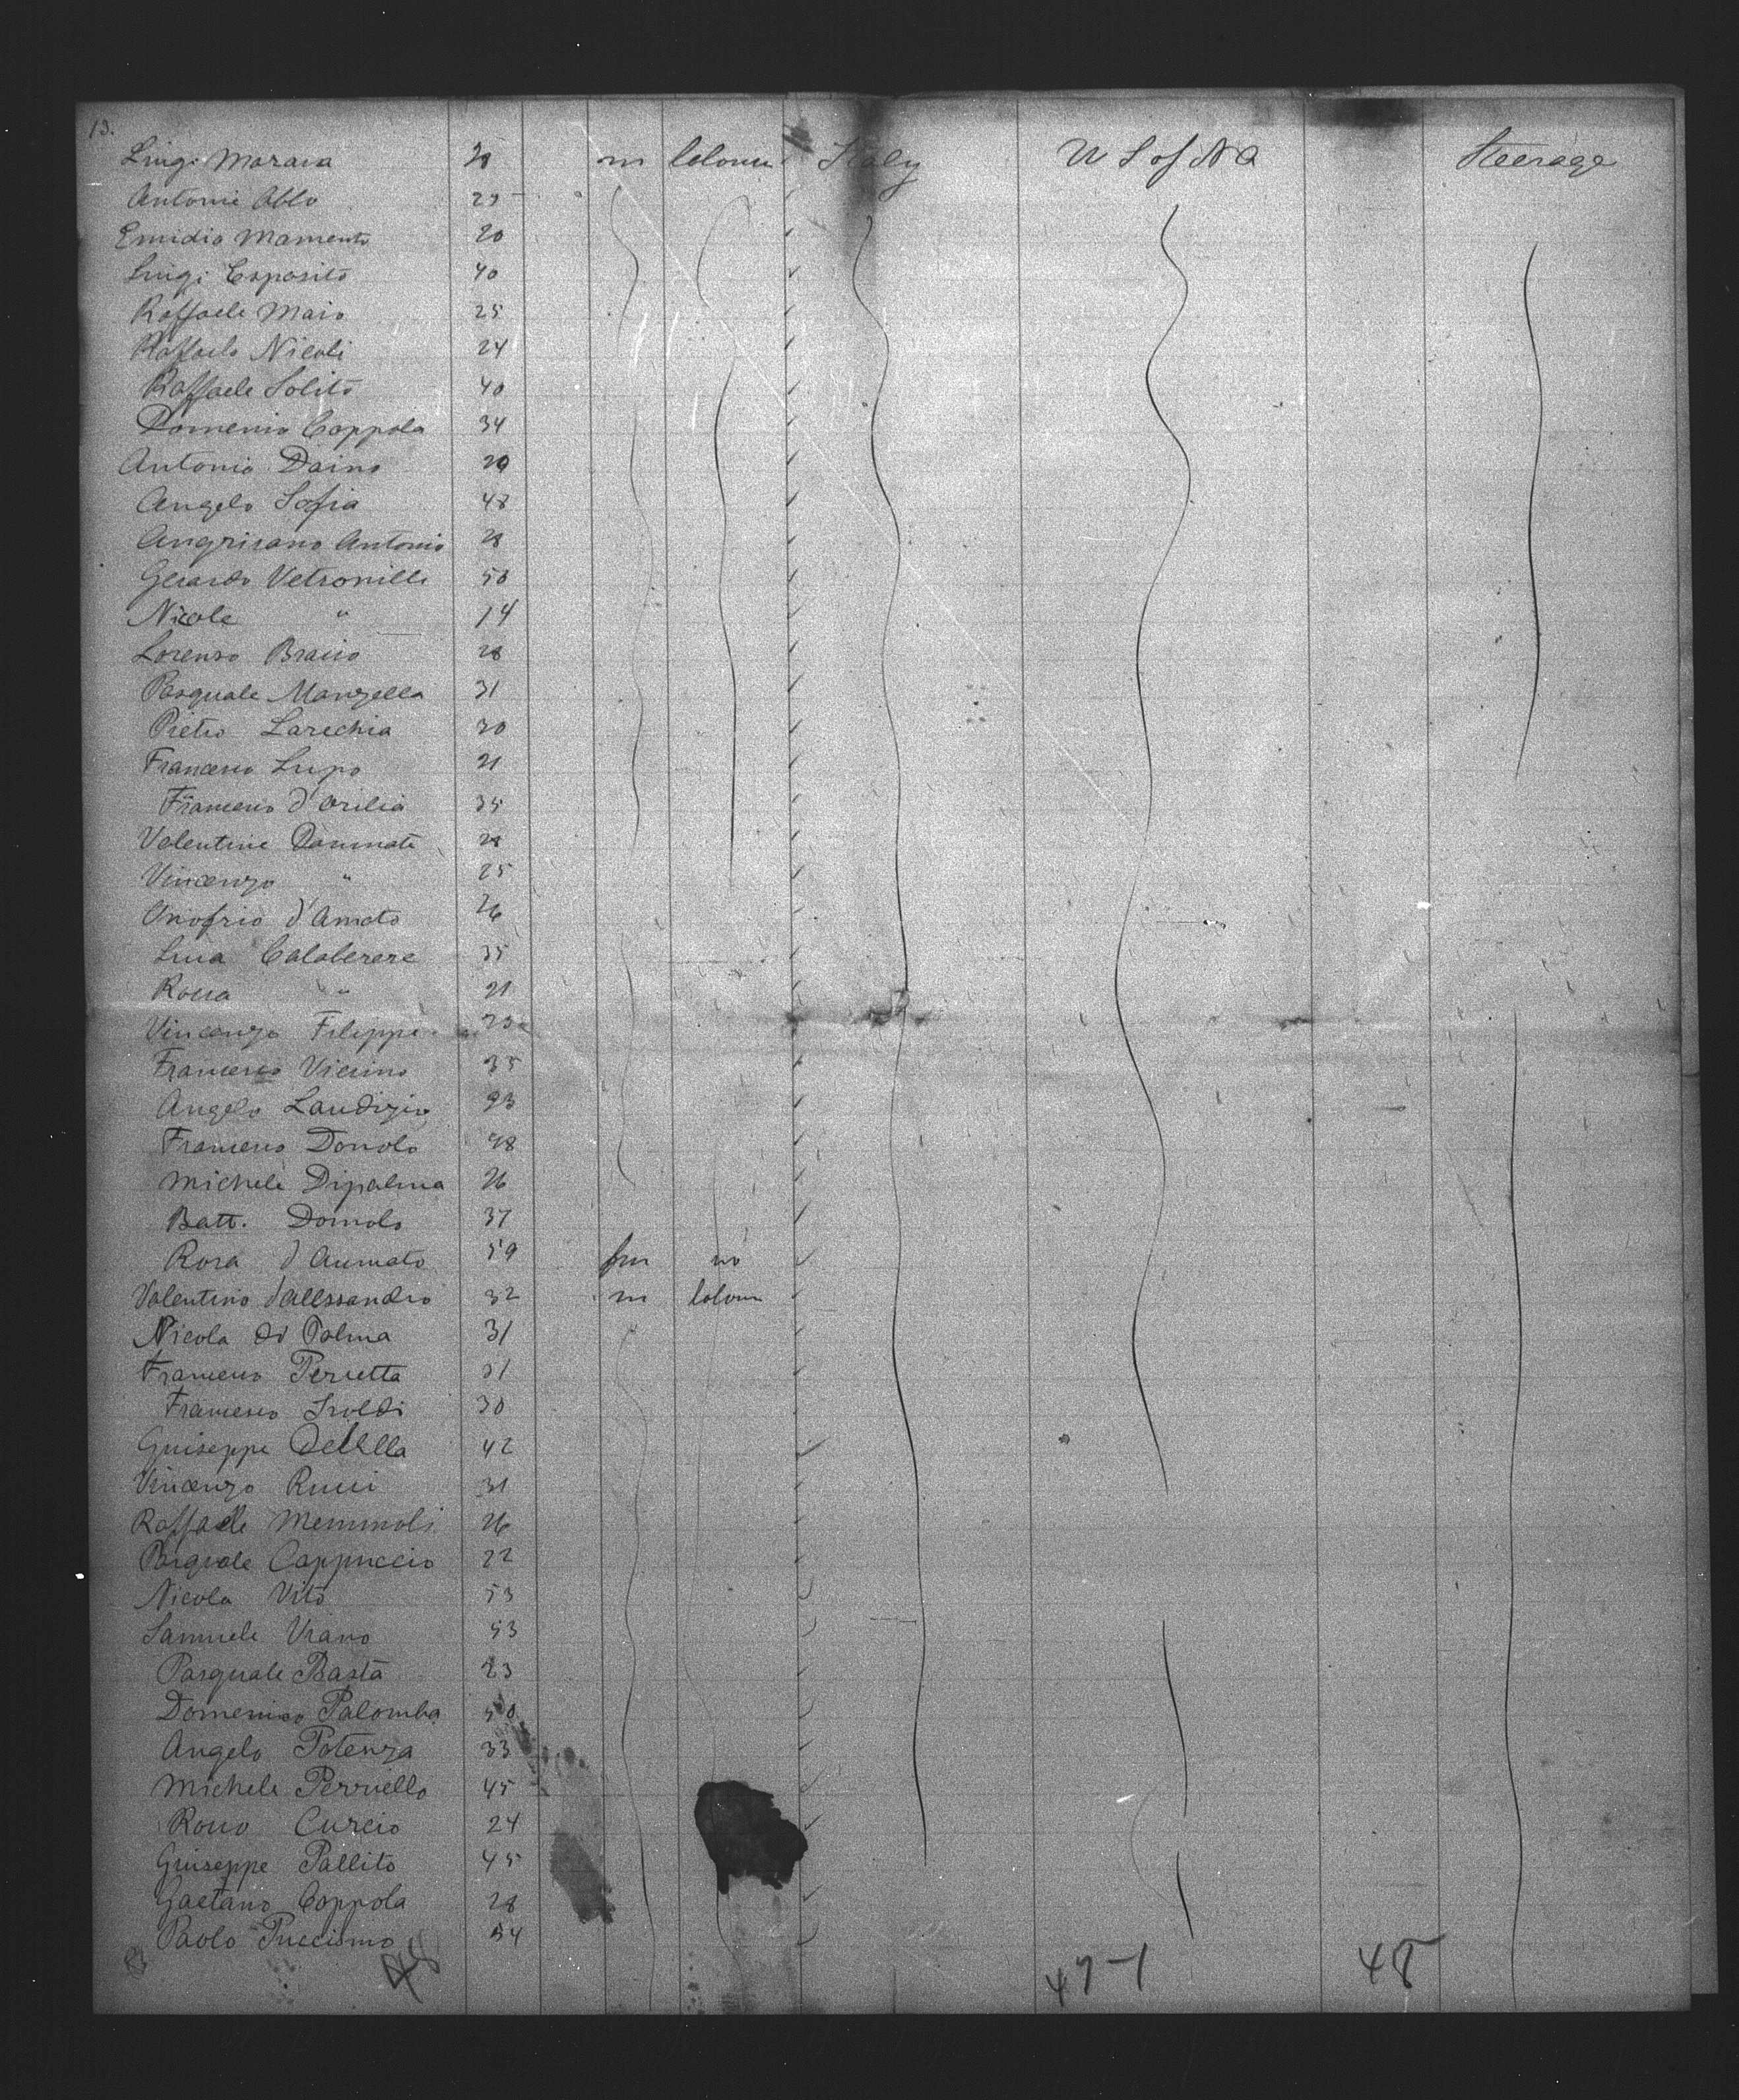 13.
Luigi Marara 28 m Colonu Italy U S of N A Steerage
Antonie Ablo 25
Emidio Mamento 20
Luigi Esposito 40
Raffaele Maio 25
Raffaele Nicoli 24
Raffaele Solito 40
Domenio Coppola 34
Antonio Daino 20
Angelo Sofia 48
Angrisano Antonio 28
Gerardo Vetromille 50
Nicole " 14
Lorenso Braiio 28
Pasquale Manzella 31
Pietro Larechia 30
Francesco Lupo 21
Francesco d'Orilia 35
Valentine Dammati 28
Vincenzo " 25
Onofrio d'Amato 26
Luia Calaberere 35
Rocca " 21
Vincenzo Filippe
Francesco Vicino 35
Angelo Laudizio 23
Francesco Donolo 48
Michele Dipalma 26
Batt. Domolo 37
Rosa d'Aumato 59 fm no
Valentino d'Alessandro 32 m Colonu
Nicola di Palma 31
Francesco Perretta 31
Francesco Isoldi 30
Guiseppe Delella 42
Vincenzo Rucci 31
Raffaele Memmoli 26
Pasquale Cappuccio 22
Nicola Vito 53
Samuele Viano 53
Pasquale Basta 23
Domenico Palomba 50
Angelo Potenza 33
Michele Perriello 45
Rocco Curcio 24
Guiseppe Pallito 45
Gaetano Coppola 28
Paolo Puccismo 54
48 47-1 48